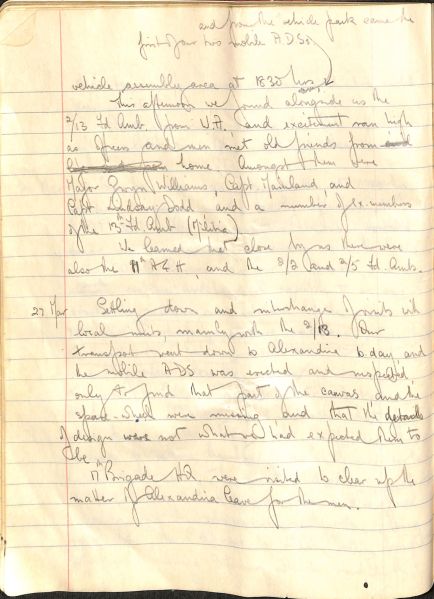 and from the vehicle park came the
first of our two mobile A.D.S's
vehicle assembly area at 1830 hrs.
This afternoon we found alongside us the
2/13 Fd Amb. from W.A., and excitement ran high
as officers and men met old friends from
home. Amongst them were
Major Gwyn Williams, Capt Mainland and
Capt Lindsay Dodd and a number of ex-members
of the 13th Fd Amb (Militia)
We learned that close by us there were
also the A G H, and the 2/2 and 2/5 Fd Ambs.
27 Mar Settling down and interchange of visits with
local units, mainly with the 2/13. Our
transport went down to Alexandria to-day, and
the mobile ADS was erected and inspected
only to find that part of the canvas and the
spare wheel were missing and that the details
of design were not what we had expected them to
be.
17th Brigade H.Q. were visited to clear up the
matter of Alexandria leave for the men.